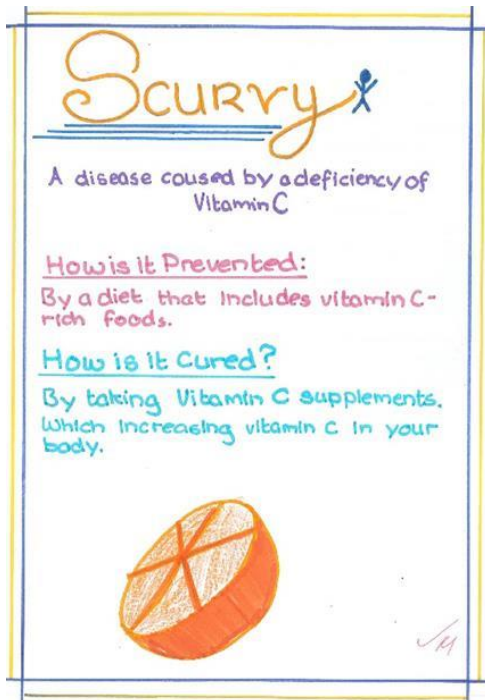 Scurvy
A disease coused by a deficiency of
Vitamin C
How is it Prevented:
By a diet that includes vitamin C-
rich foods.
How is it Cured?
By taking Vitamin C supplements.
Which increasing vitamin c in your
body.